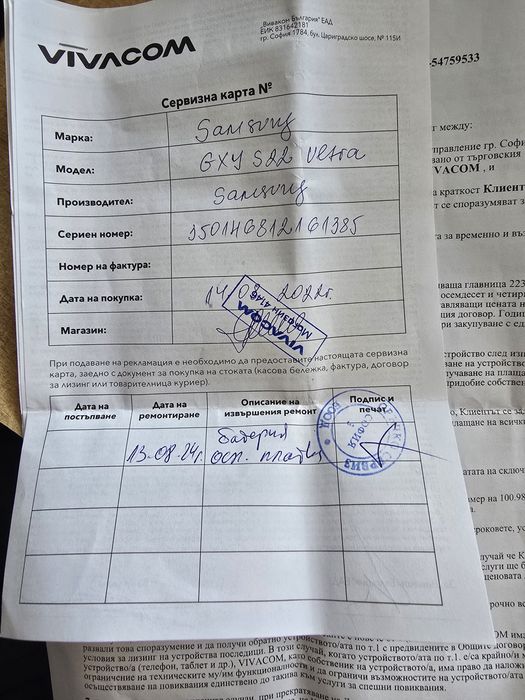 VIVACOM
„Виваком България" ЕАД
ЕИК 831642181
гр. София 1784, бул. Цариградско шосе, № 115И
Сервизна карта №
Марка: Samsung
Модел: GXY S22 Ultra
Производител: Samsung
Сериен номер: 350146812161385
Номер на фактура:
Дата на покупка: 14 03 2022г.
Магазин:
VIVACOM
При подаване на рекламация е необходимо да предоставите настоящата сервизна
карта, заедно с документ за покупка на стоката (касова бележка, фактура, договор
за лизинг или товарителница куриер).
Дата на постъпване
Дата на ремонтиране
Описание на извършения ремонт
Подпис и печат
13-08-24г.
батерия
осн. платка
СОФИЯ
-54759533
г между:
управление гр. Софи
вано от търговския
VIVACOM , и
а краткост Клиент
т се споразумяват з
та за временно и въз
ваща главница 223
осемдесет и четири
авляващи цената н
ия договор. Годин
ри закупуване с ед
стройство след изп
ване на устройство
лучаване на плаща
придобие собствен
о, Клиентът се за
лащане на всички
атата на сключ
мер на 100.98
роковете, ус
лучай че К
слуги ще б
ценовата
рочно во
развали това споразумение и да получи обратно
условия за лизинг на устройства последици. В този случай, когато устройството/ата по т.1. е/са крайно/и м
устройство/а (телефон, таблет и др.), VIVACOM, като собственик на устройството/ата, има право да налож
ограничение на техническите му/им функционалности и да ограничи възможностите на устройството/ата
осъществяване на повиквания единствено до такива към услуги за спешни повиквания.